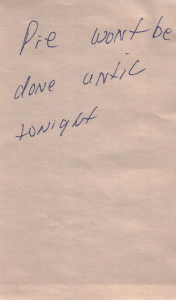 Pie wont be
done until
tonight